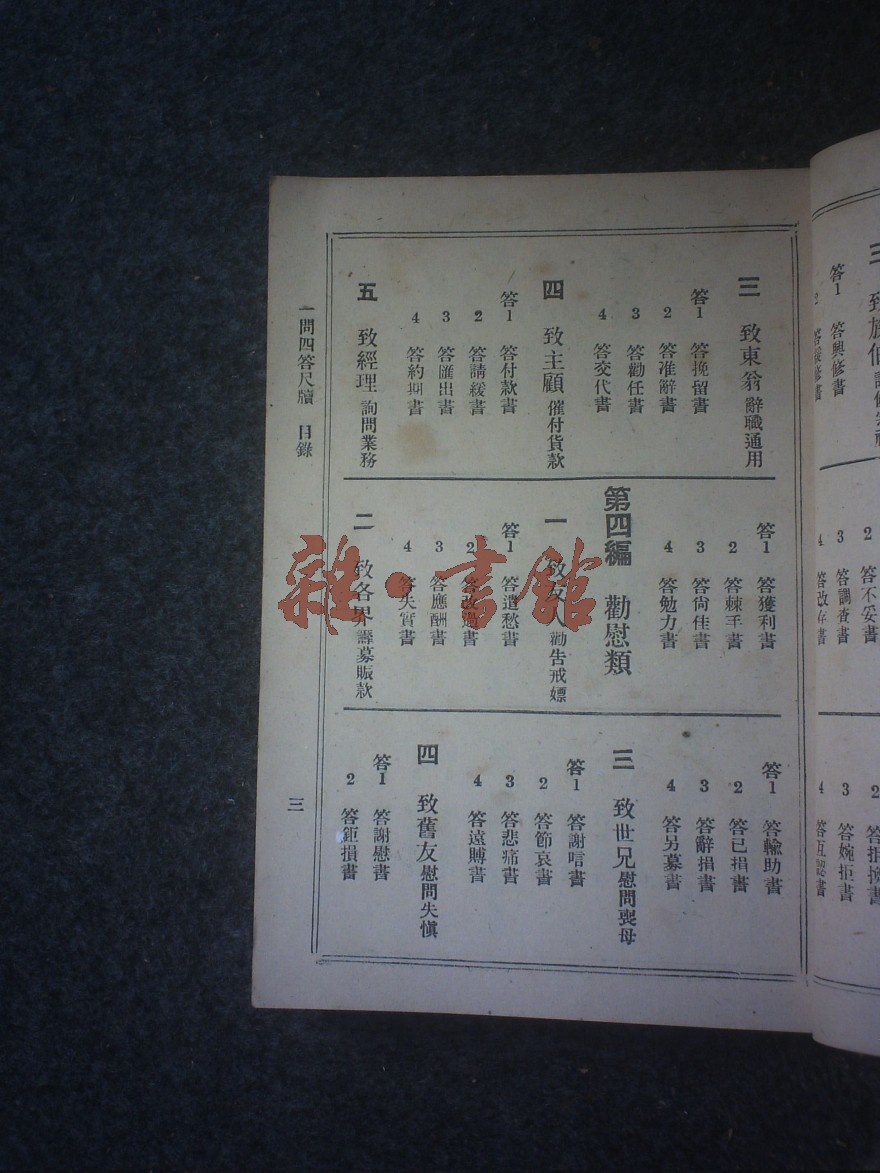 三 致東翁 辭職通用
答1 答挽留書
2 答准辭書
3 答勸任書
4 答交代書
四 致主顧 催付貨款
答1 答付款書
2 答請緩書
3 答匯出書
4 答約期書
五 致經理 詢問業務
答1 答獲利書
2 答棘手書
3 答尙佳書
4 答勉力書
第四編 勸慰類
一 致友人 勸告戒嫖
答1 答遣愁書
2 答改過書
3 答應酬書
4 答失實書
二 致各界 籌募賑款
答1 答輸助書
2 答已捐書
3 答辭捐書
4 答另募書
三 致世兄 慰問喪母
答1 答謝唁書
2 答節哀書
3 答悲痛書
4 答遠賻書
四 致舊友 慰問失愼
答1 答謝慰書
2 答鉅損書
一問四答尺牘 目錄
三
雜·書館
答1 答興修書
2 答不妥書
3 答調查書
4 答改存書
3 答婉拒書